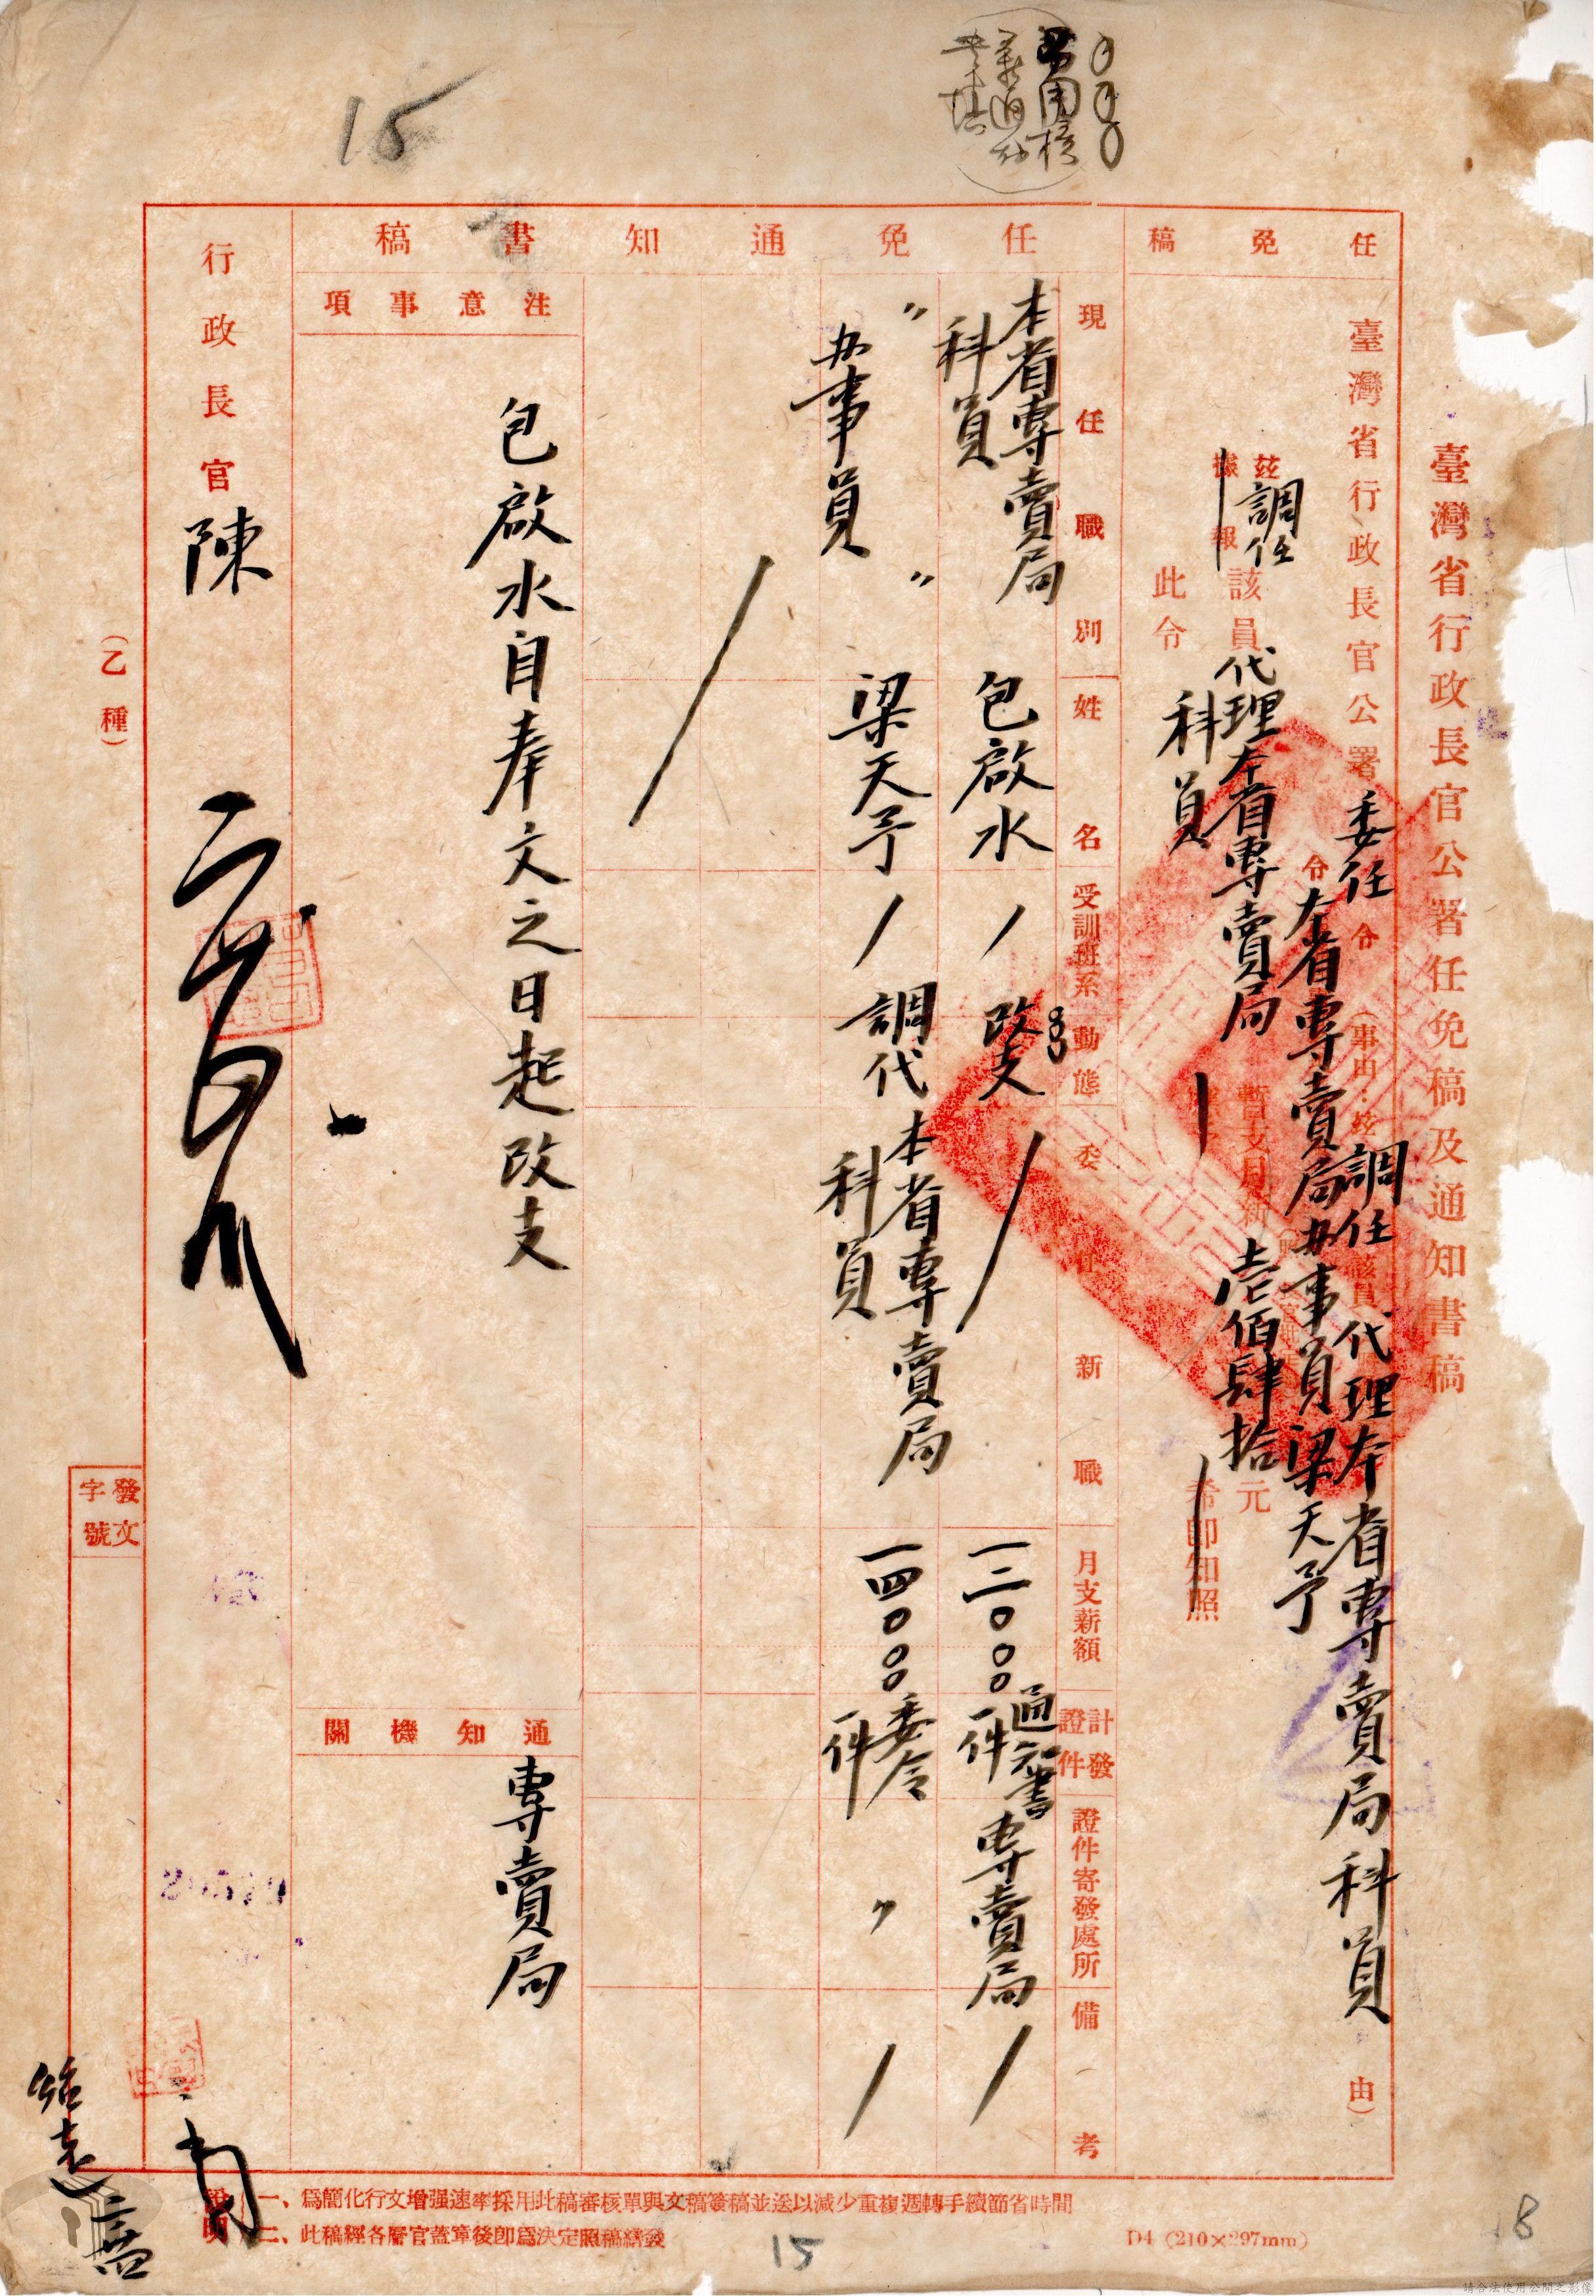 臺灣省行政長官公署任免稿及通知書稿
任免稿
臺灣省行政長官公署委任令(事由:茲調任該員代理本省專賣局科員由)
令本省專賣局办事員梁天予
茲調任該員代理本省專賣局科員 暫支月薪壹佰肆拾元
據報
希即知照
此令
任免通知書稿
現任職別 姓名 受訓班系 動態 委任新職 月支薪額 計發證件 證件寄發處所 備考
本省專賣局科員 包啟水 / 改支 / 一二〇〇〇 通知書一件 專賣局 /
〃办事員〃 梁天予 / 調代 本省專賣局科員 一四〇〇〇 委令一件 〃 /
注意事項
包啟水自奉文之日起改支
通知機關
專賣局
行政長官 陳
(乙種)
發文字號
說明
一、爲簡化行文增强速率採用此稿審核單與文稿簽稿並送以減少重複週轉手續節省時間
二、此稿經各層官蓋章後卽爲決定照稿繕發
D4 (210×297mm)
15
15
18
請合法使用公開之影像